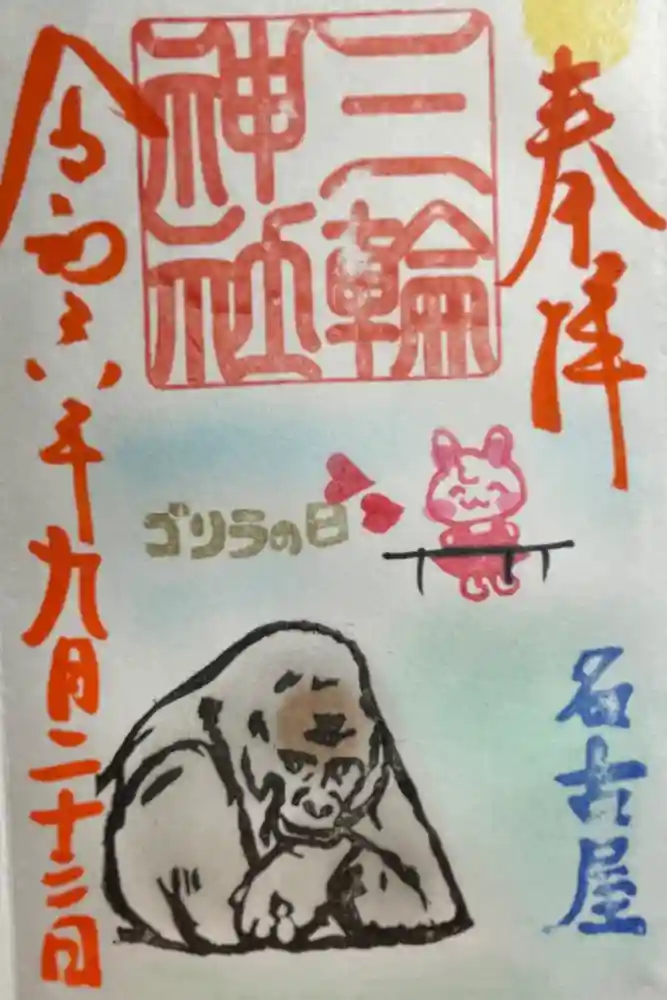 奉拝
三輪
神社
令和六年九月二十二日
ゴリラの日
名古屋